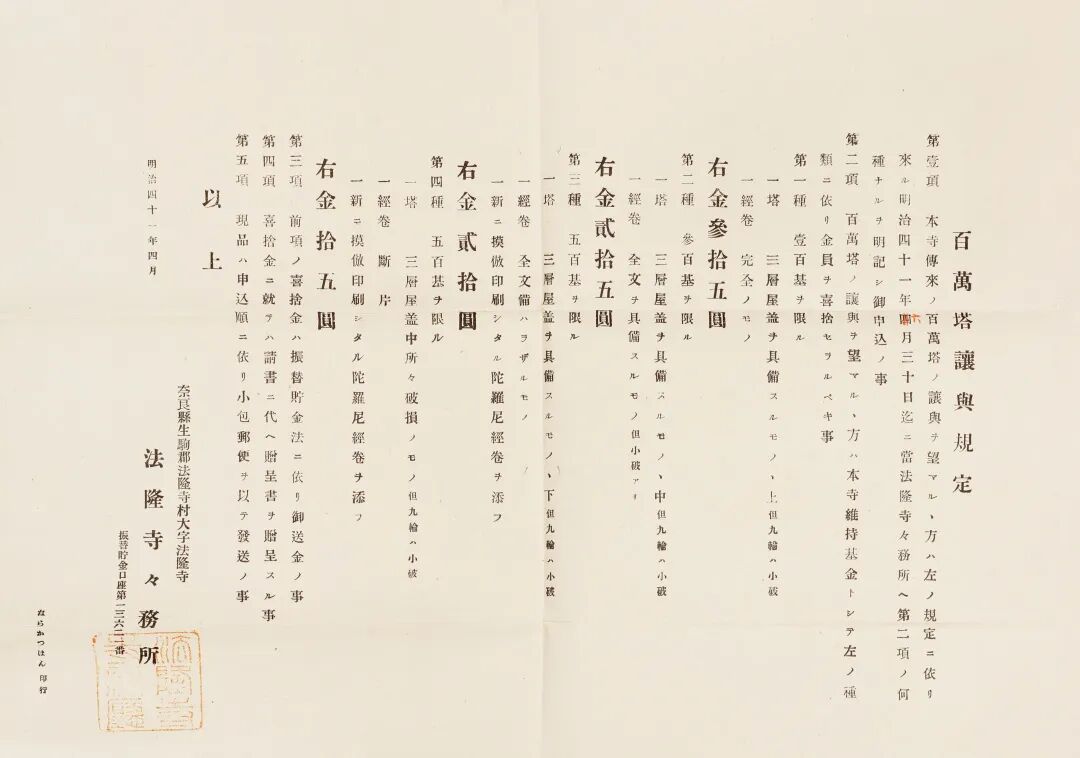 百萬塔讓與規定
第壹項　本寺傳來ノ百萬塔ノ讓與ヲ望マルヽ方ハ左ノ規定ニ依リ
來ル明治四十一年六月三十日迄ニ當法隆寺々務所ヘ第二項ノ何
種ナルヲ明記シ御申込ノ事
第二項　百萬塔ノ讓與ヲ望マルヽ方ハ本寺維持基金トシテ左ノ種
類ニ依リ金員ヲ喜捨セラルベキ事
第一種　壹百基ヲ限ル
一塔　三層屋盖ヲ具備スルモノヽ上但九輪ハ小破
一經卷　完全ノモノ
右金參拾五圓
第二種　參百基ヲ限ル
一塔　三層屋盖ヲ具備スルモノヽ中但九輪ハ小破
一經卷　全文ヲ具備スルモノ但小破アリ
右金貳拾五圓
第三種　五百基ヲ限ル
一塔　三層屋盖ヲ具備スルモノヽ下但九輪ハ小破
一經卷　全文備ハラザルモノ
一新ニ摸倣印刷シタル陀羅尼經卷ヲ添フ
右金貳拾圓
第四種　五百基ヲ限ル
一塔　三層屋盖中所々破損ノモノ但九輪ハ小破
一經卷　斷片
一新ニ摸倣印刷シタル陀羅尼經卷ヲ添フ
右金拾五圓
第三項　前項ノ喜捨金ハ振替貯金法ニ依リ御送金ノ事
第四項　喜捨金ニ就テハ請書ニ代ヘ贈呈書ヲ贈呈スル事
第五項　現品ハ申込順ニ依リ小包郵便ヲ以テ發送ノ事
以上
明治四十一年四月
奈良縣生駒郡法隆寺村大字法隆寺
法隆寺々務所
振替貯金口座第一三六二一番
ならかつはん印行